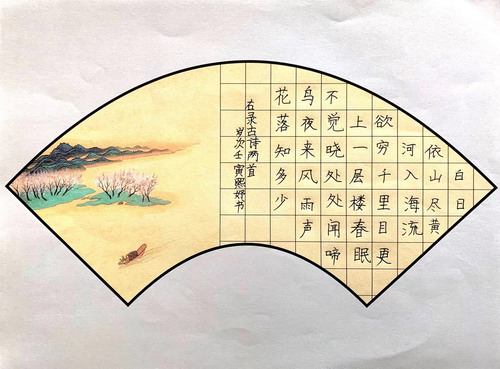 白日
依山尽黄
河入海流
欲穷千里目更
上一层楼春眠
不觉晓处处闻啼
鸟夜来风雨声
花落知多少
右录古诗两首
岁次壬寅熙书